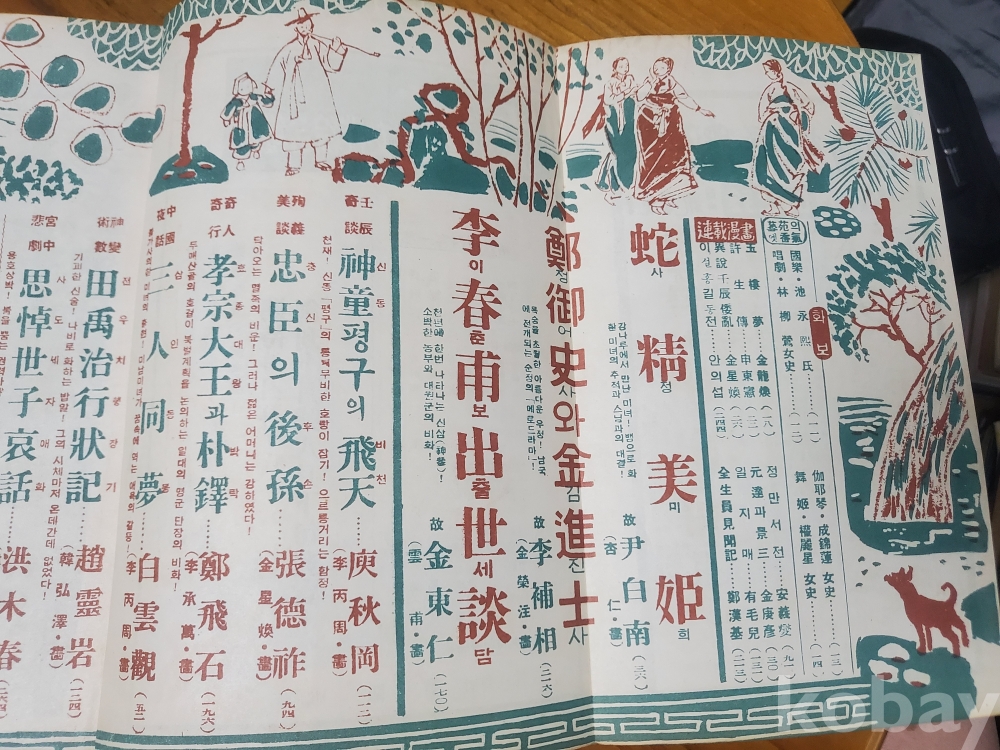 화보
의 氣
藝苑香氣
國樂·池永熙氏……(一一)
唱劇·林柳鶯女史……(一二)
伽耶琴·成錦蓮女史……(一三)
舞姬·權麗星女史……(一四)
連載漫畫
玉樓夢……金龍煥……(一八)
許生傳……申東憲……(二二)
異說壬辰倭亂……金星煥……(二六)
이설 홍길동전……안의섭……(二四)
정만서전……安義燮……(九一)
元達과 景三……金庚彦……(三〇)
일지매……有毛兒……(一三〇)
全生員見聞記……鄭漢基……(二三)
蛇精美姬
사정미희
강나루에서 만난 미녀! 뱀으로 화
할 미녀의 추적과 스님과의 대결!
故 尹白南 (三六)
(杏仁·畵)
鄭御史와 金進士
정어사 김진사
목숨을 초월한 아름다운 우정! 남국
에 전개되는 순정의 「메로드라마」!
故 李補相 (二六)
(金榮注·畵)
李春甫出世談
이춘보출세담
천년에 한번 나타나는 신삼(神蔘)!
소박한 농부와 대원군의 비화!
故 金東仁 (一七〇)
(雲甫·畵)
壬辰奇談
神童평구의 飛天
신동 비천
천재! 신동 「평구」의 통쾌무비한 호랑이 잡기! 으르릉거리는 함정!
庾秋岡 (一一二)
(李丙周·畵)
殉義美談
忠臣의 後孫
충신 후손
닥아오는 멸족의 비운! 그러나 젊은 어머니는 강하였다!
張德祚 (九四)
(金星煥·畵)
奇人奇行
孝宗大王과 朴鐸
효종대왕 박탁
두메산속의 호랑이 북벌계획을 논의하는 일대의 명군 단장의 비화!
鄭飛石 (一九六)
(李承萬·畵)
中國夜話
三人同夢
삼인동몽
白雲觀 (五二)
(李丙周·畵)
神變術數
田禹治行狀記
전우치행장기
기괴한 신술! 나비로 화하는 밥알! 그의 시체마저 온데간데 없었다!
趙靈岩 (一三四)
(韓弘澤·畵)
宮中悲劇
思悼世子哀話
사도세자애화
洪木春
kobay